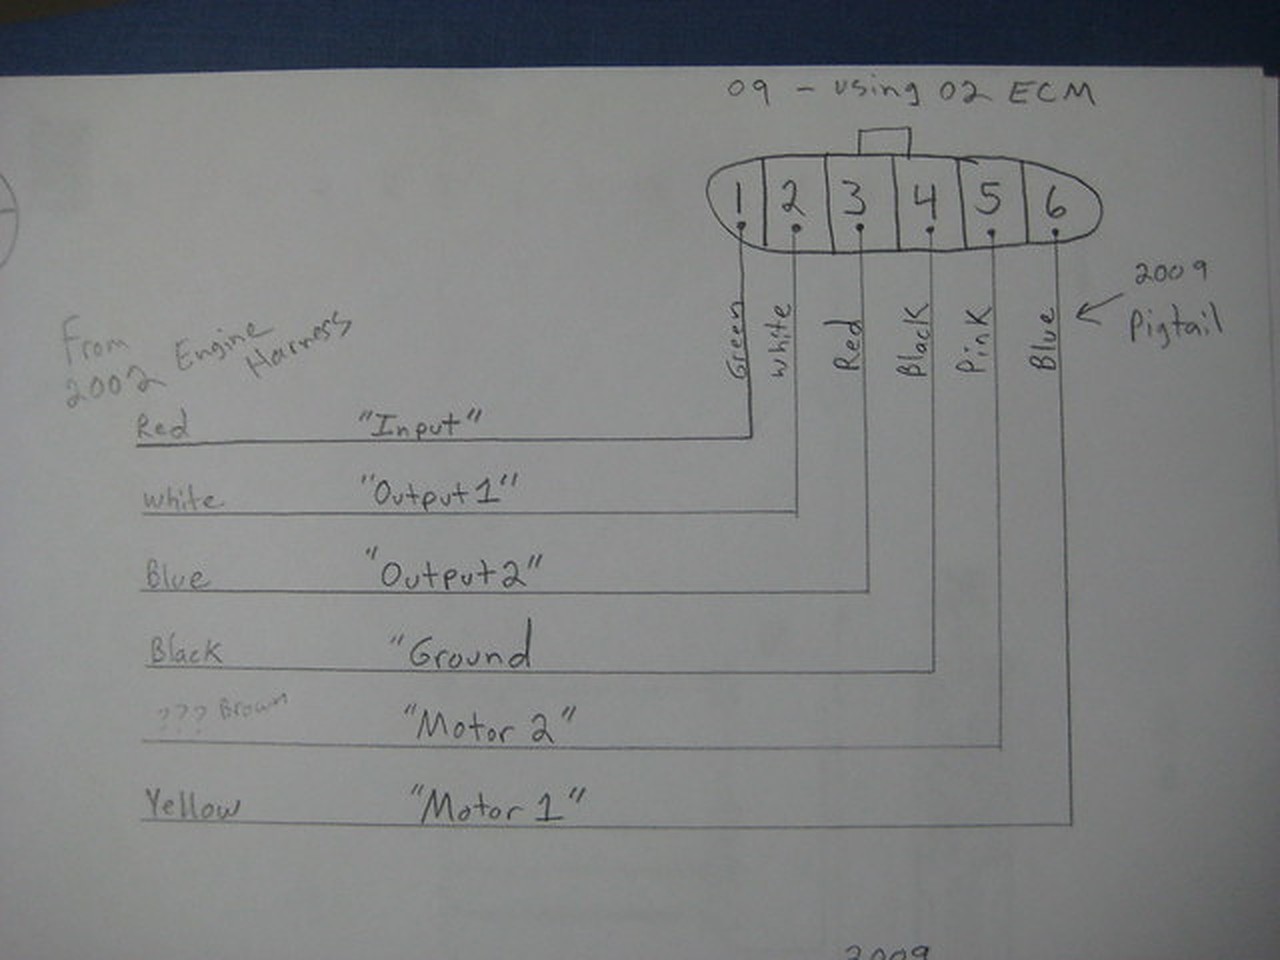 09 - using 02 ECM
1 2 3 4 5 6
2009
Pigtail
Green
White
Red
Black
Pink
Blue
From
2002 Engine
Harness
Red "Input"
White "Output 1"
Blue "Output 2"
Black "Ground
??? Brown "Motor 2"
Yellow "Motor 1"
2009